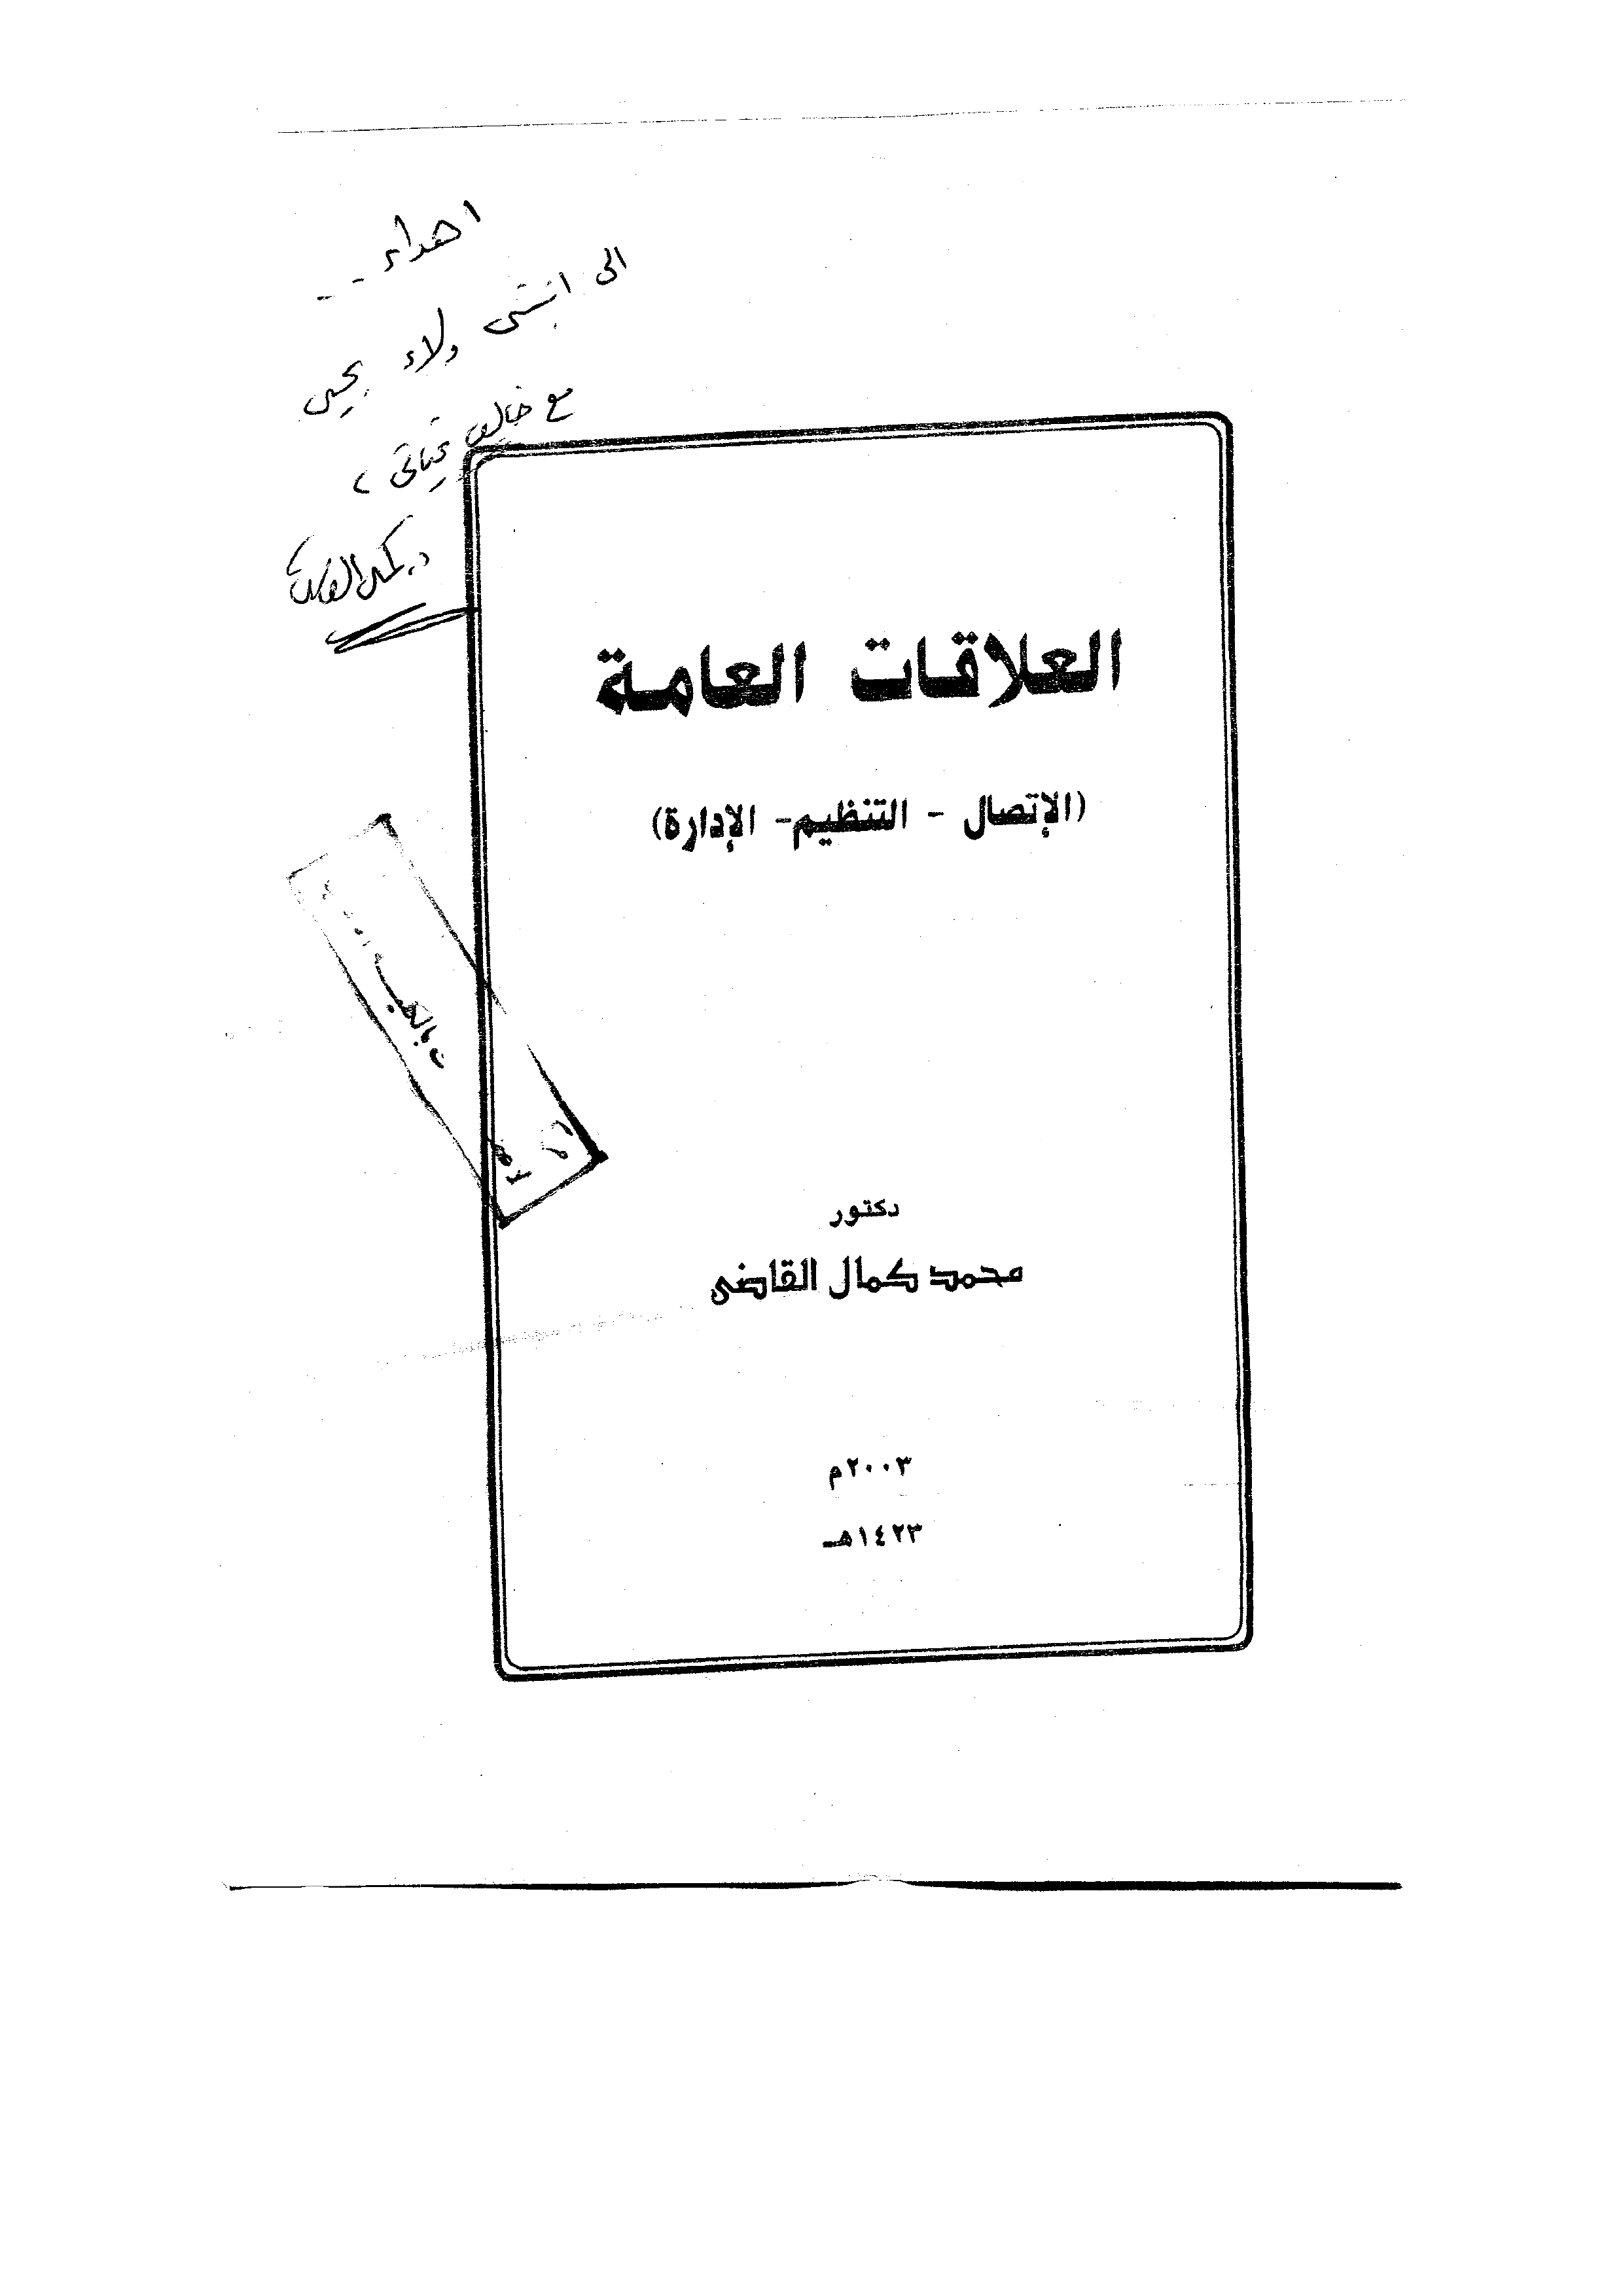 اهداء --
الى ابنتى ولاء يحيى
مع خالص تحياتى ،
العلاقات العامة
(الإتصال - التنظيم- الإدارة)
دكتور
محمد كمال القاضى
٢٠٠٣م
١٤٢٣هـ